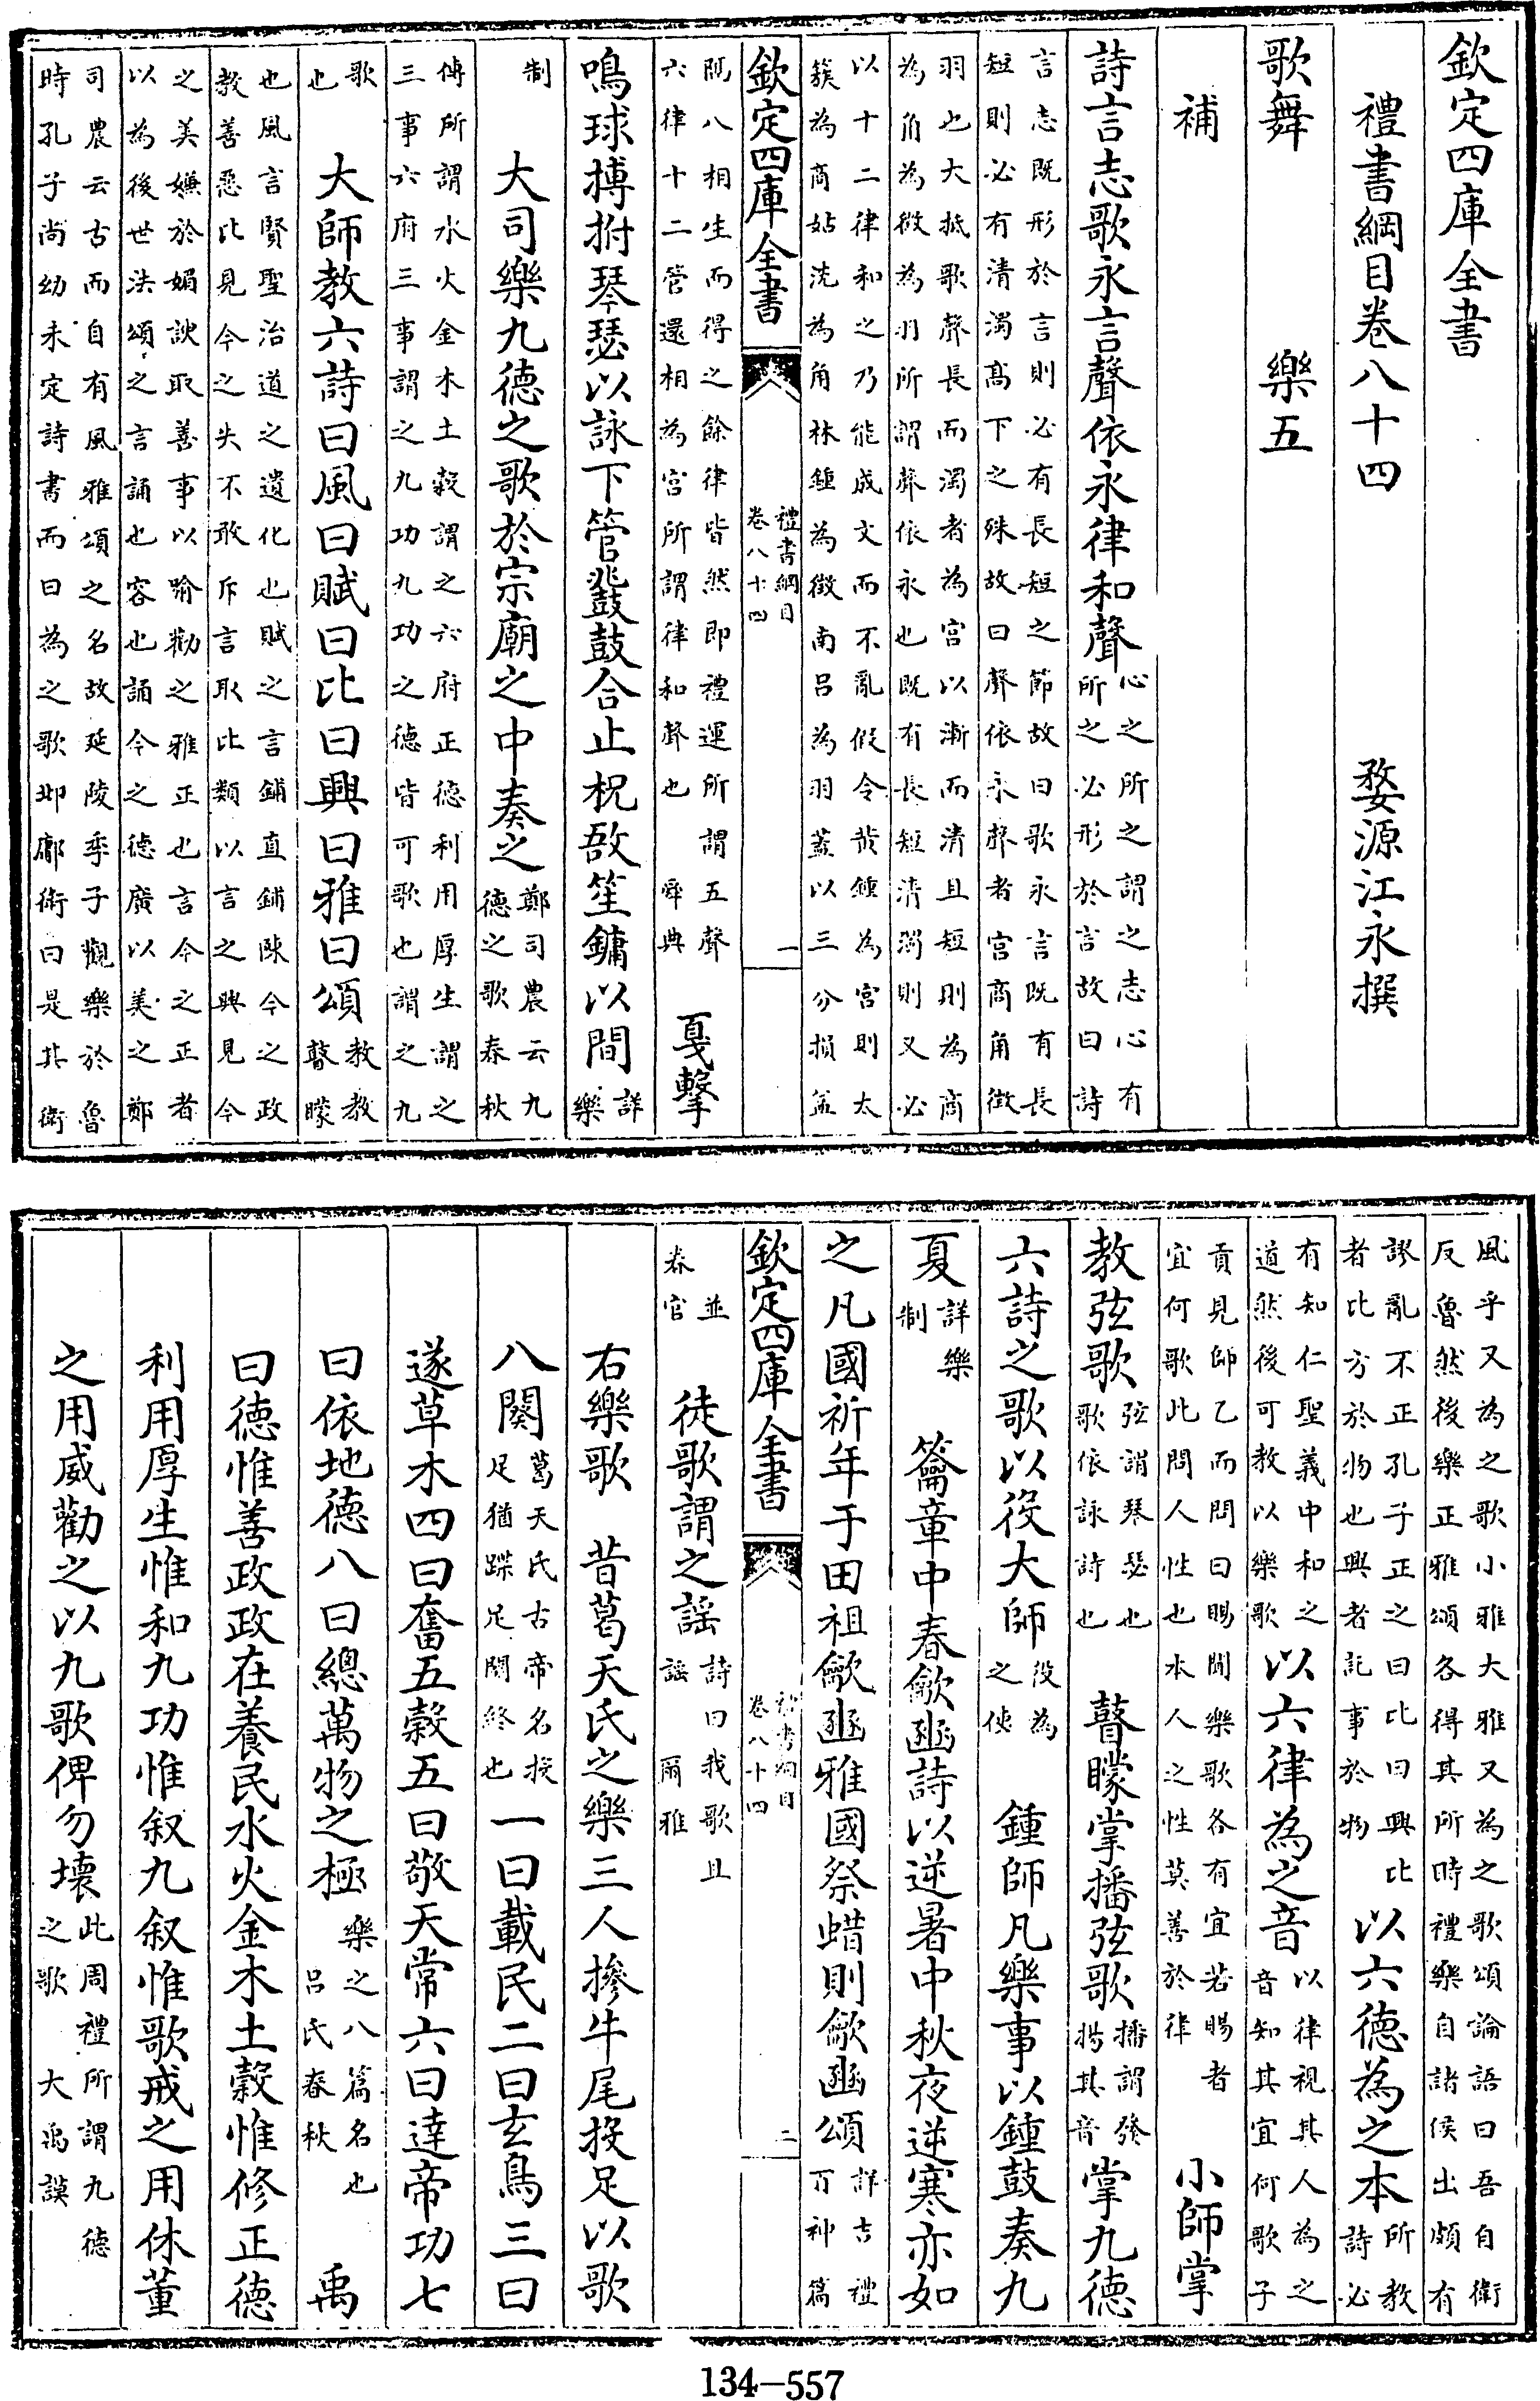 欽定四庫全書
禮書綱目卷八十四　婺源江永撰
歌舞　樂五
補
詩言志歌永言聲依永律和聲
心之所之謂之志心有
所之必形於言故曰詩
言志既形於言則必有長短之節故曰歌永言既有長
短則必有清濁高下之殊故曰聲依永聲者宮商角徵
羽也大抵歌聲長而濁者為宮以漸而清且短則為商
為角為徵為羽所謂聲依永也既有長短清濁則又必
以十二律和之乃能成文而不亂假令黄鍾為宮則太
簇為商姑洗為角林鍾為徵南呂為羽蓋以三分損益
欽定四庫全書　禮書綱目
卷八十四　一
隔八相生而得之餘律皆然即禮運所謂五聲
六律十二管還相為宮所謂律和聲也　舜典
戛擊
鳴球搏拊琴瑟以詠下管鼗鼓合止柷敔笙鏞以間
詳
樂
制
大司樂九德之歌於宗廟之中奏之
鄭司農云九
德之歌春秋
傳所謂水火金木土穀謂之六府正德利用厚生謂之
三事六府三事謂之九功九功之德皆可歌也謂之九
歌
也
大師教六詩曰風曰賦曰比曰興曰雅曰頌
教教
瞽矇
也風言賢聖治道之遺化也賦之言鋪直鋪陳今之政
教善惡比見今之失不敢斥言取比類以言之興見今
之美嫌於媚諛取善事以喻勸之雅正也言今之正者
以為後世法頌之言誦也容也誦今之德廣以美之鄭
司農云古而自有風雅頌之名故延陵季子觀樂於魯
時孔子尚幼未定詩書而曰為之歌邶鄘衛曰是其衛
風乎又為之歌小雅大雅又為之歌頌論語曰吾自衛
反魯然後樂正雅頌各得其所時禮樂自諸侯出頗有
謬亂不正孔子正之曰比曰興比
者比方於物也興者託事於物
以六德為之本
所教
詩必
有知仁聖義中和之
道然後可教以樂歌
以六律為之音
以律視其人為之
音知其宜何歌子
貢見師乙而問曰賜聞樂歌各有宜若賜者
宜何歌此問人性也本人之性莫善於律
小師掌
教弦歌
弦謂琴瑟也
歌依詠詩也
瞽矇掌播弦歌
播謂發
揚其音
掌九德
六詩之歌以役大師
役為
之使
鍾師凡樂事以鍾鼓奏九
夏
詳樂
制
籥章中春龡豳詩以逆暑中秋夜逆寒亦如
之凡國祈年于田祖龡豳雅國祭蜡則龡豳頌
詳吉禮
百神篇
欽定四庫全書　禮書綱目
卷八十四　二
並
春官
徒歌謂之謡
詩曰我歌且
謡　爾雅
右樂歌　昔葛天氏之樂三人摻牛尾投足以歌
八闋
葛天氏古帝名投
足猶蹀足闋終也
一曰載民二曰玄鳥三曰
遂草木四曰奮五穀五曰敬天常六曰達帝功七
曰依地德八曰總萬物之極
樂之八篇名也
呂氏春秋
禹
曰德惟善政政在養民水火金木土穀惟修正德
利用厚生惟和九功惟叙九叙惟歌戒之用休董
之用威勸之以九歌俾勿壞
此周禮所謂九德
之歌　大禹謨
134—557